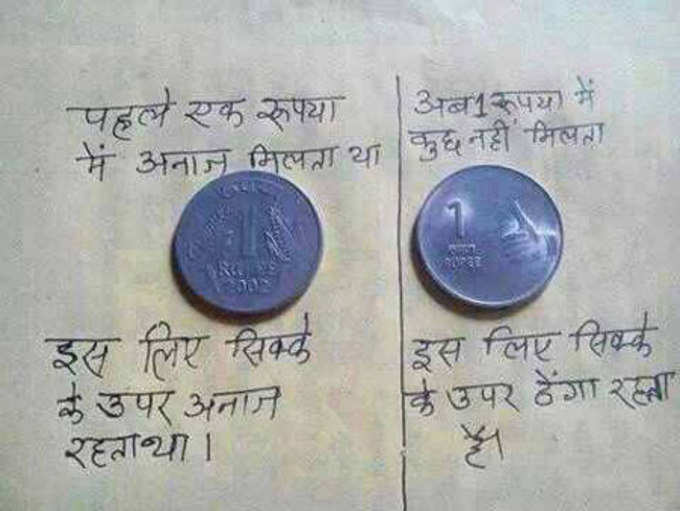 पहले एक रूपया
में अनाज मिलता था
1
RUPEE
2002
इस लिए सिक्के
के उपर अनाज
रहता था।
अब 1 रूपया में
कुछ नहीं मिलता
1
रुपया
RUPEE
इस लिए सिक्के
के उपर ठेंगा रहता
है।